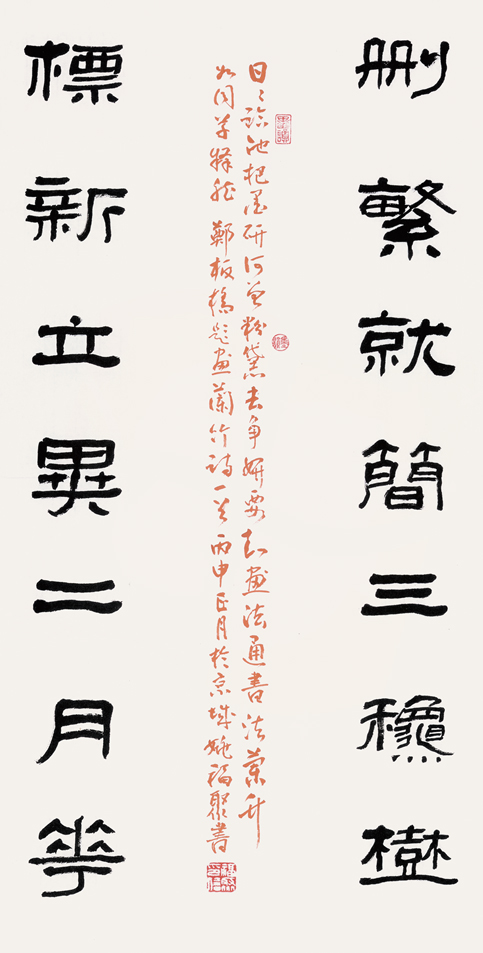 删繁就簡三龝樹
日〻臨池把墨研何曾粉黛去争妍要知畫法通書法蘭竹
如同草隸然 鄭板橋題畫蘭竹詩一首 丙申正月於京城姚福聚書
標新立異二月華